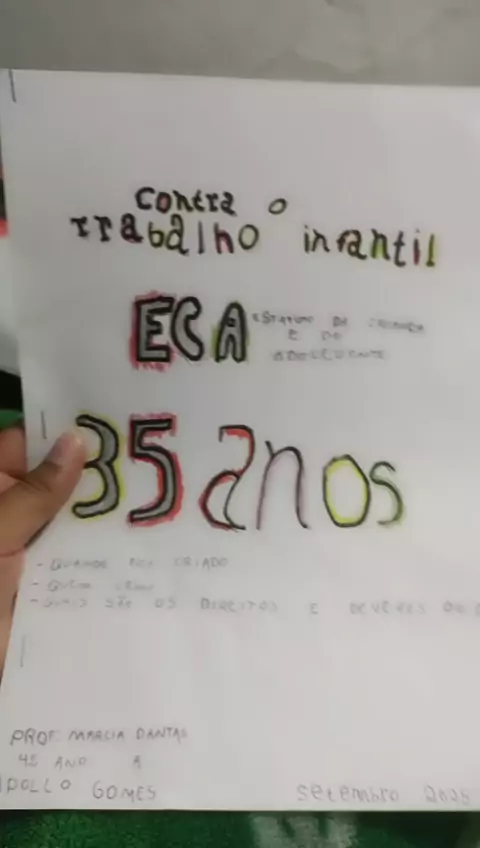 contra o
trabalho infantil
ECA ESTATUTO DA CRIANÇA
E DO
ADOLESCENTE
35 anos
- QUANDO FOI CRIADO
- QUEM
- QUAIS SÃO OS DIREITOS E DEVERES DO
PROF: MARCIA DANTAS
4º ANO A
POLLO GOMES
setembro 2025